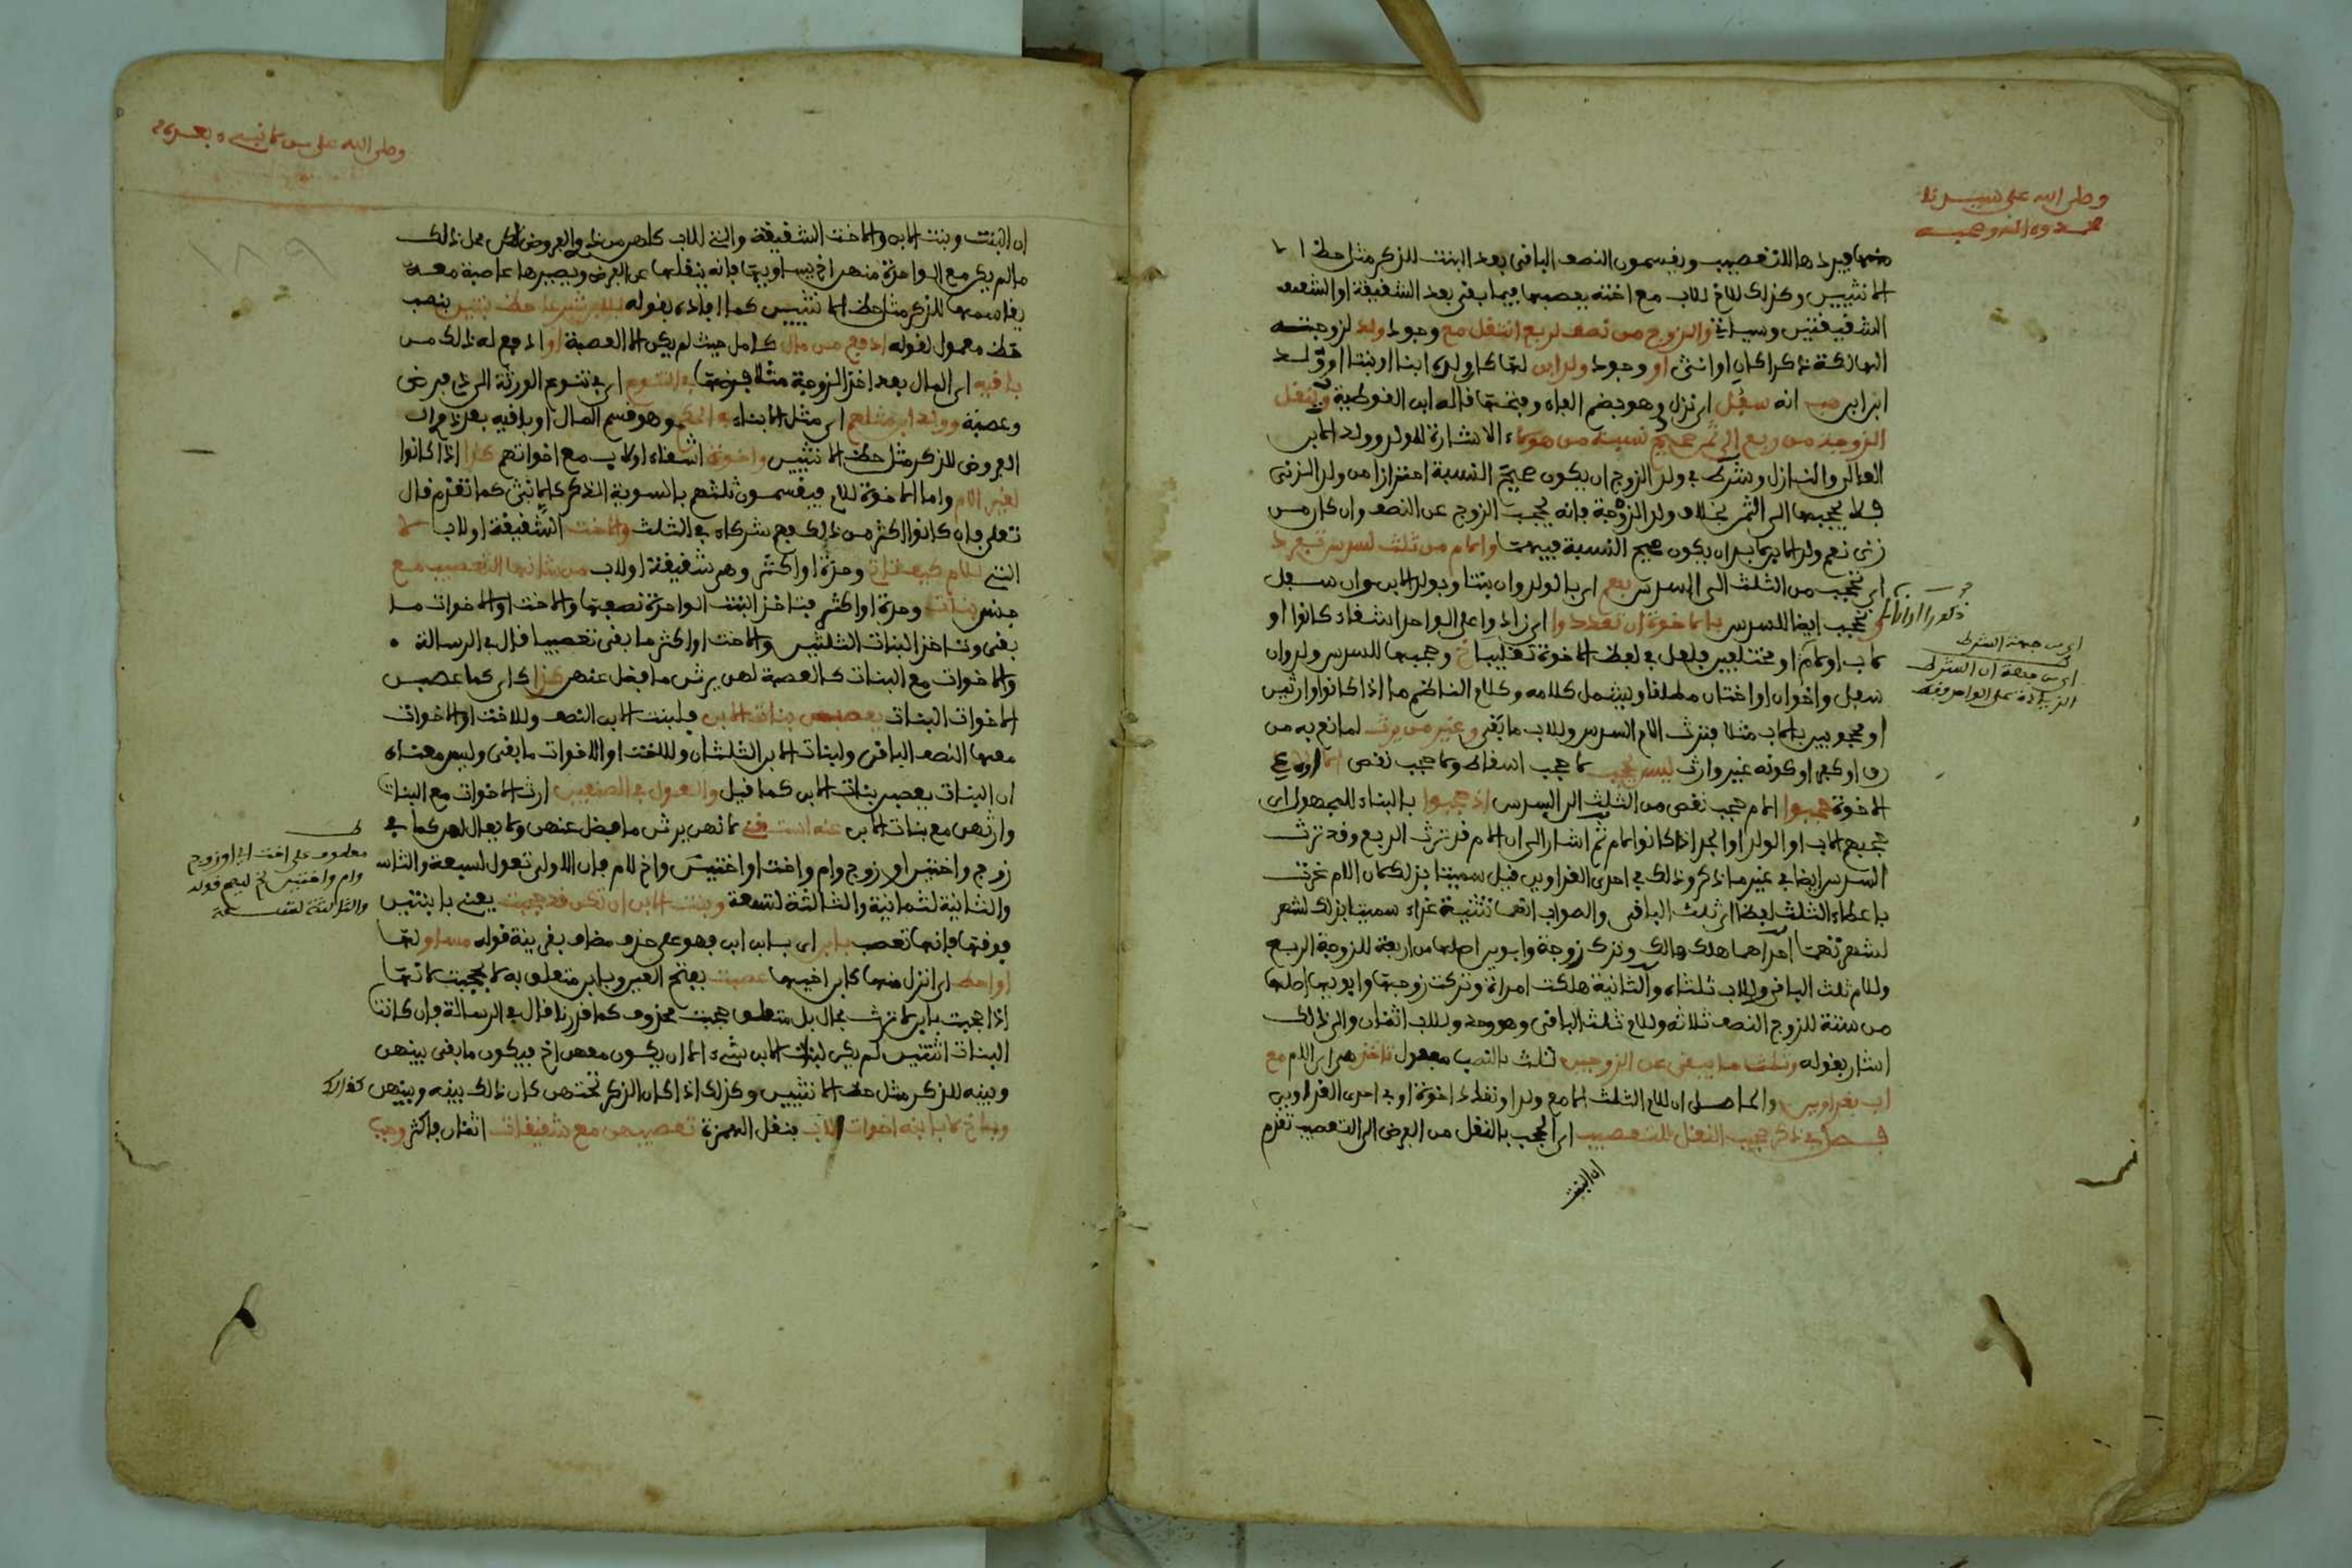 وصلى الله على سيدنا
محمد وءاله وصحبه
منهما فيردها للتعصيب ويقسمون النصف الباقي بعد البنت للذكر مثل حظ ا
الانثيين وكذلك للاخ للاب مع اخته يعصبها فيما بقي بعد الشقيقة او الشقيـ
الشقيقتين وسياتي والزوج من نصف لربع انتقل مع وجود ولد لزوجته
الهالكة ذكرا كان او انثى او وجود ولد ابن لها كان ولده ابنا او بنتا او ولد
ابن ابن حيث انه سفل اي نزل وهو بضم الفاء وفتحها قاله ابن القوطية وتنقل
الزوجة من ربع الى ثمن صحيح نسبة من هؤلاء الاشارة للولد وولد الابن
العالي والنازل وشرط في ولد الزوج ان يكون صحيح النسبة احترازا من ولد الزنى
فلا يحجبها الى الثمن بخلاف ولد الزوجة فانه يحجب الزوج عن النصف وان كان من
زنى نعم ولد الابن لا بد ان يكون صحيح النسبة فيهما والام من ثلث لسدس تفرد
اي تحجب من الثلث الى السدس بهم اي بالولد وان بنتا وبولد الابن وان سفل
وتحجب ايضا للسدس بالاخوة ان تعددوا اي زادوا على الواحد اشقاء كانوا او
لاب او لام او مختلفين ولعل في لفظ الاخوة تغليبا وحجبها للسدس ولد وان
سفل واخوان او اختان مطلقا ويشمل كلامه وكلام الناظم ما اذا كانوا وارثين
او محجوبين بالاب مثلا فترث الام السدس وللاب ما بقي وغير من يرث لمانع به من
رق او كفر او كونه غير وارث ليس يحجب لا حجب اسقاط ولا حجب نقص
الاخوة حجبوا الام حجب نقص من الثلث الى السدس اذ حجبوا بالبناء للمجهول اي
حجبهم الاب او الولد او الجد اذا كانوا لام ثم اشار الى ان الام قد ترث الربع وقد ترث
السدس ايضا في غير ما ذكر وذلك في احدى الغراوين قيل سميتا بذلك لان الام غرت
باعطاء الثلث لفظا اي ثلث الباقي والصواب انها تثنية غراء سميتا بذلك لشهر
لشهرتهما احداهما هلك هالك وترك زوجة وابوين اصلها من اربعة للزوجة الربع
وللام ثلث الباقي وللاب ثلثاه والثانية هلكت امراة وتركت زوجها وابويها اصلها
من ستة للزوج النصف ثلاثة وللام ثلث الباقي وهو واحد وللاب اثنان والى ذلك
اشار بقوله وثلث ما يبقى عن الزوجين ثلث بالنصب مفعول تاخذ هي اي الام مع
اب بغراوين والحاصل ان للام الثلث الا مع ولد او تعدد اخوة او في احدى الغراوين
فصل في ذكر حجب النقل للتعصيب اي الحجب بالنقل من الفرض الى التعصيب تقدم
ان البنت
ذكورا او اناثا
اي من جهة الشرط
اي من جهة ان الشرط
الزيادة على الواحد فقط
وصلى الله على من لا نبي بعده
١٨٩
ان البنت وبنت الابن والاخت الشقيقة والتي للاب كلهن من ذوي الفروض لكن محل ذلك
ما لم يكن مع الواحدة منهن اخ يساويها فانه ينقلها عن الفرض ويصيرها عاصبة معه
يقاسمها للذكر مثل حظ الانثيين كما افاده بقوله للابن شرعا حظ بنتين بنصب
حظ معمول لقوله ادفع من مال كامل حيث لم يكن الا العصبة او ادفع له ذلك من
باقيه اي المال بعد اخذ الزوجة مثلا فرضها في التنوع اي في تنوع الورثة الى ذي فرض
وعصبة وولد ابن مثلهم اي مثل الابناء في الحكم وهو قسم المال او باقيه بعد ذوات
الفروض للذكر مثل حظ الانثيين واخوة اشقاء او لاب مع اخواتهم كذا اذا كانوا
لغير الام واما الاخوة للام فيقسمون ثلثهم بالسوية الذكر كالانثى كما تقدم قال
تعالى فان كانوا اكثر من ذلك فهم شركاء في الثلث والاخت الشقيقة او لاب لا
التي للام كيف تاتي وحدة او اكثر وهي شقيقة او لاب من شانها التعصيب مع
جنس بنات وحدة او اكثر فتاخذ البنت الواحدة نصفها والاخت او الاخوات ما
بقي وتاخذ البنات الثلثين والاخت او اكثر ما بقي تعصيبا قال في الرسالة
والاخوات مع البنات كالعصبة لهن يرثن ما فضل عنهن كذا كاي كما عصبن
الاخوات البنات يعصبهن بنات الابن فلبنت الابن النصف وللاخت او الاخوات
معها النصف الباقي ولبنات الابن الثلثان وللاخت او الاخوات ما بقي وليس معناه
ان البنات يعصبن بنات الابن كما قيل والعول في الصنفين ارث الاخوات مع البنات
وارثهن مع بنات الابن عنه استغني لانهن يرثن ما فضل عنهن ولا يعال لهن كما في
زوج واختين او زوج وام واخت او اختين واخ لام فان الاولى تعول لسبعة والثانـ
والثانية لثمانية والثالثة لتسعة وبنت الابن ان تكن قد حجبت يعني بابنتين
فوقها فانها تعصب بابن اي بابن ابن فهو على حذف مضاف بقرينة قوله مساو لها
او احط اي انزل منها كابن اخيها عصبت بفتح العين وبابن متعلق به لا بحجبت لانها
اذا حجبت بابن لا ترث بحال بل متعلق حجبت محذوف كما قررنا قال في الرسالة فان كانت
البنات اثنتين لم يكن لبنات الابن شيء الا ان يكون معهن اخ فيكون ما بقي بينهن
وبينه للذكر مثل حظ الانثيين وكذلك اذا كان الذكر تحتهن كان ذلك بينه وبينهن كذلك
وباخ لا بابنه اخوات للاب بنقل الهمزة تعصيبهن مع شقيقات اثنتان فاكثر وجب
معطوف على اخت اي او زوج
وام واختين الخ ليصح قوله
والثالثة لتسعة